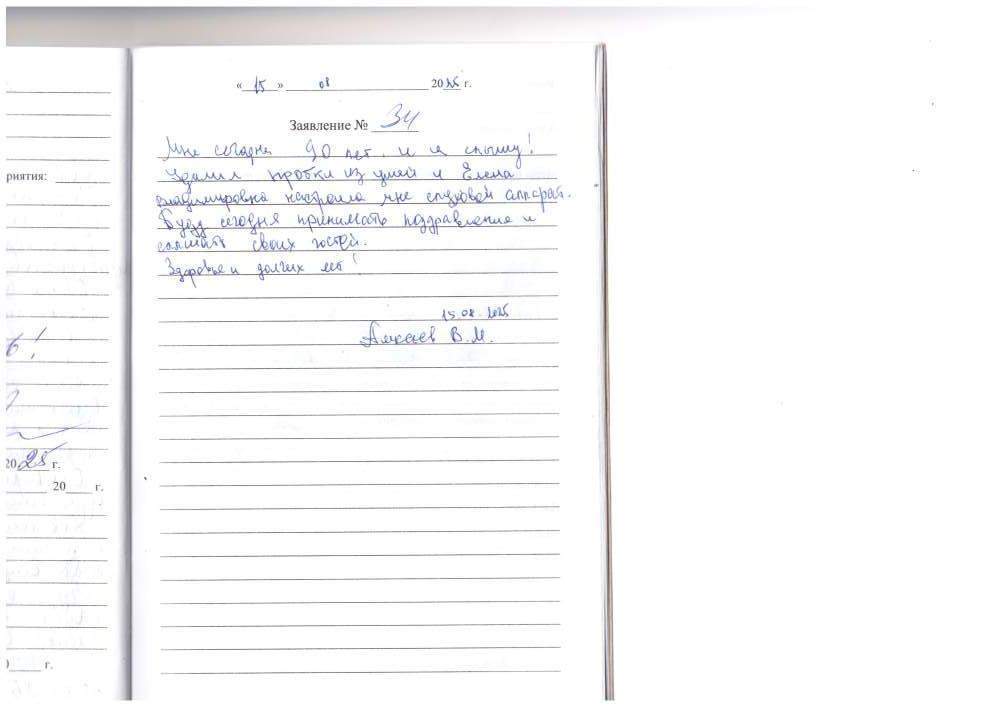 «15» 08 2025 г.
Заявление № 34
Мне сегодня 90 лет. и я слышу!
Удалил пробки из ушей и Елена
Владимировна настроила мне слуховой аппарат.
Буду сегодня принимать поздравление и
слышать своих гостей.
Здоровья и долгих лет!
15.08.2025
В.М.
риятия:
!
2025 г.
20 г.
г.